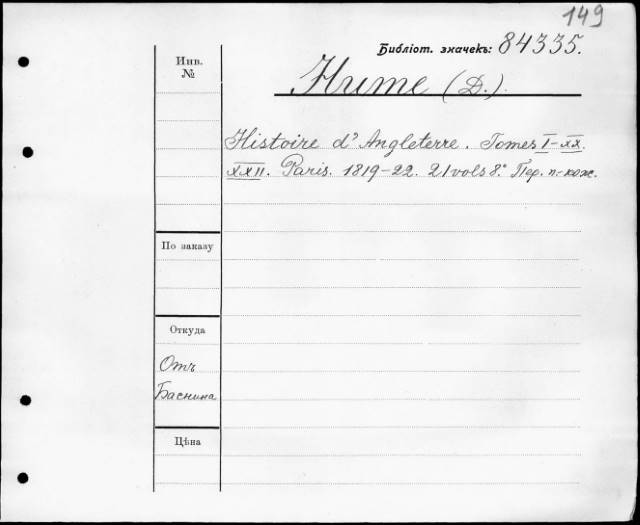 149
Библіот. значекъ: 84335.
Инв.
№
Hume (D.).
Histoire d'Angleterre. Tomes I-XX.
XXII. Paris. 1819-22. 21 vols 8° Пер. п.-кож.
По заказу
Откуда
Отъ
Баснина
Цѣна